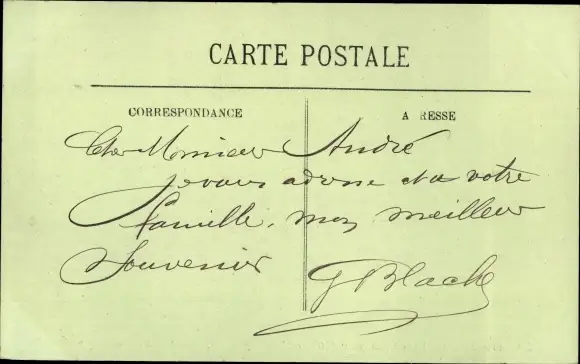 CARTE POSTALE
CORRESPONDANCE
A RESSE
Cher Monsieur André
je vous adresse et a votre
famille, mon meilleur
Souvenir
G Black